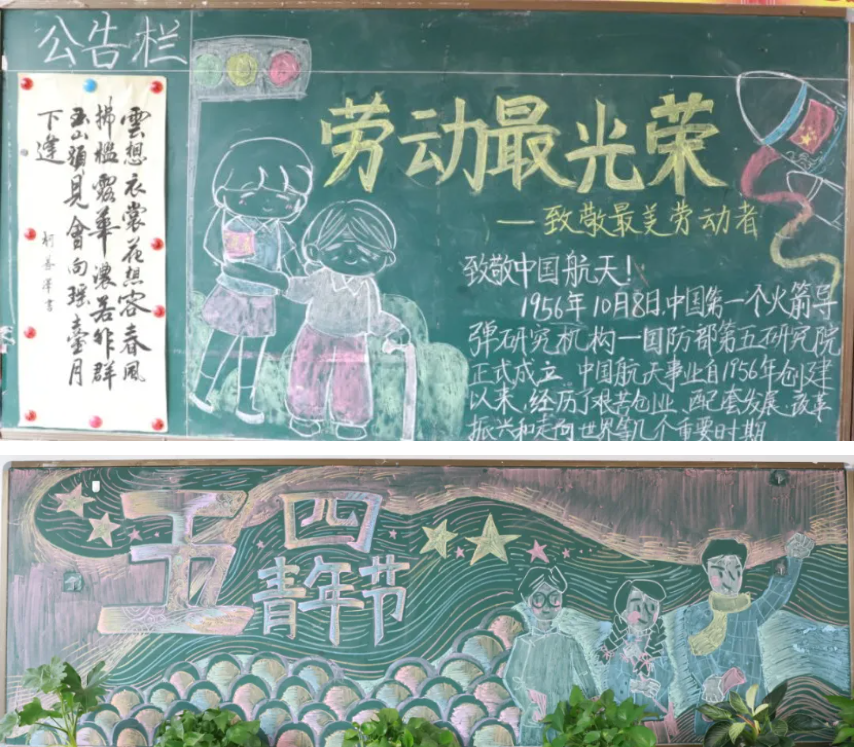 公告栏
雲想衣裳花想容春風
拂檻露華濃若非群
玉山頭見會向瑶臺月
下逢
书
劳动最光荣
—致敬最美劳动者
致敬中国航天!
1956年10月8日,中国第一个火箭导
弹研究机构—国防部第五研究院
正式成立.中国航天事业自1956年创建
以来,经历了艰苦创业、配套发展、改革
振兴和走向世界等几个重要时期
五四
青年节